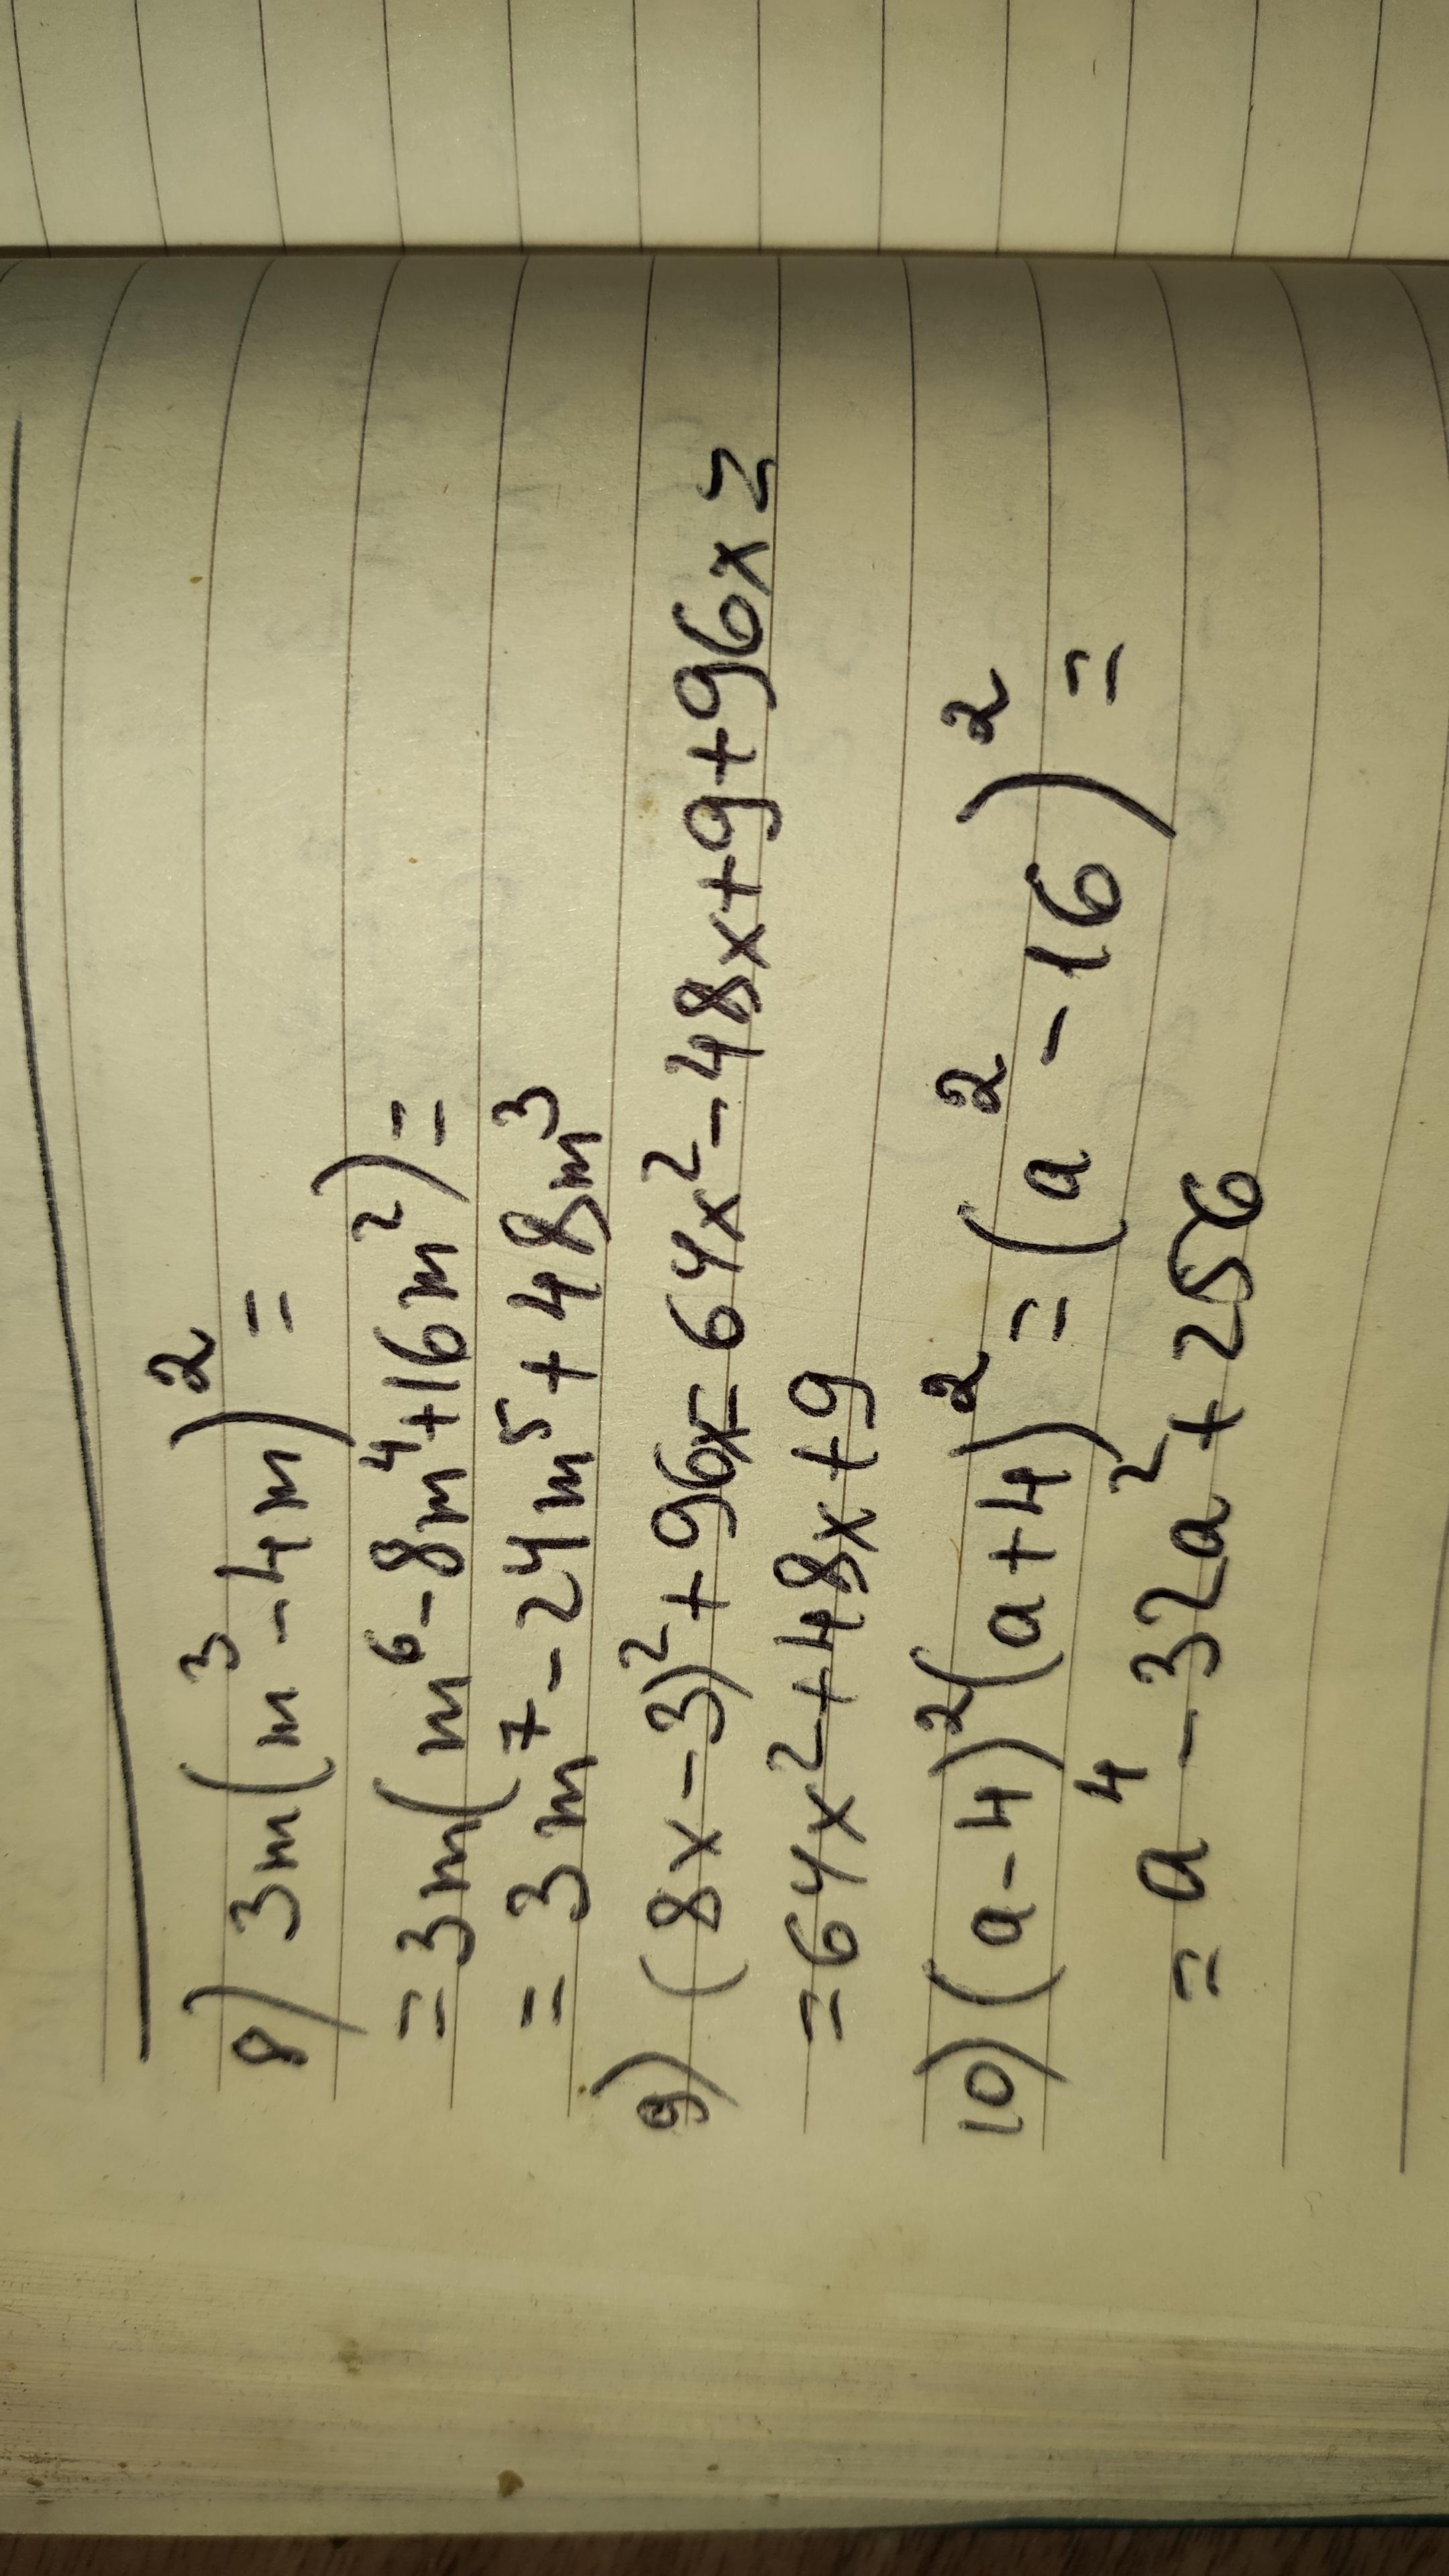 8) 3m(m³-4m)²=
=3m(m⁶-8m⁴+16m²)=
=3m⁷-24m⁵+48m³
9) (8x-3)²+96x=64x²-48x+9+96x=
=64x²+48x+9
10) (a-4)²(a+4)²=(a²-16)²=
=a⁴-32a²+256